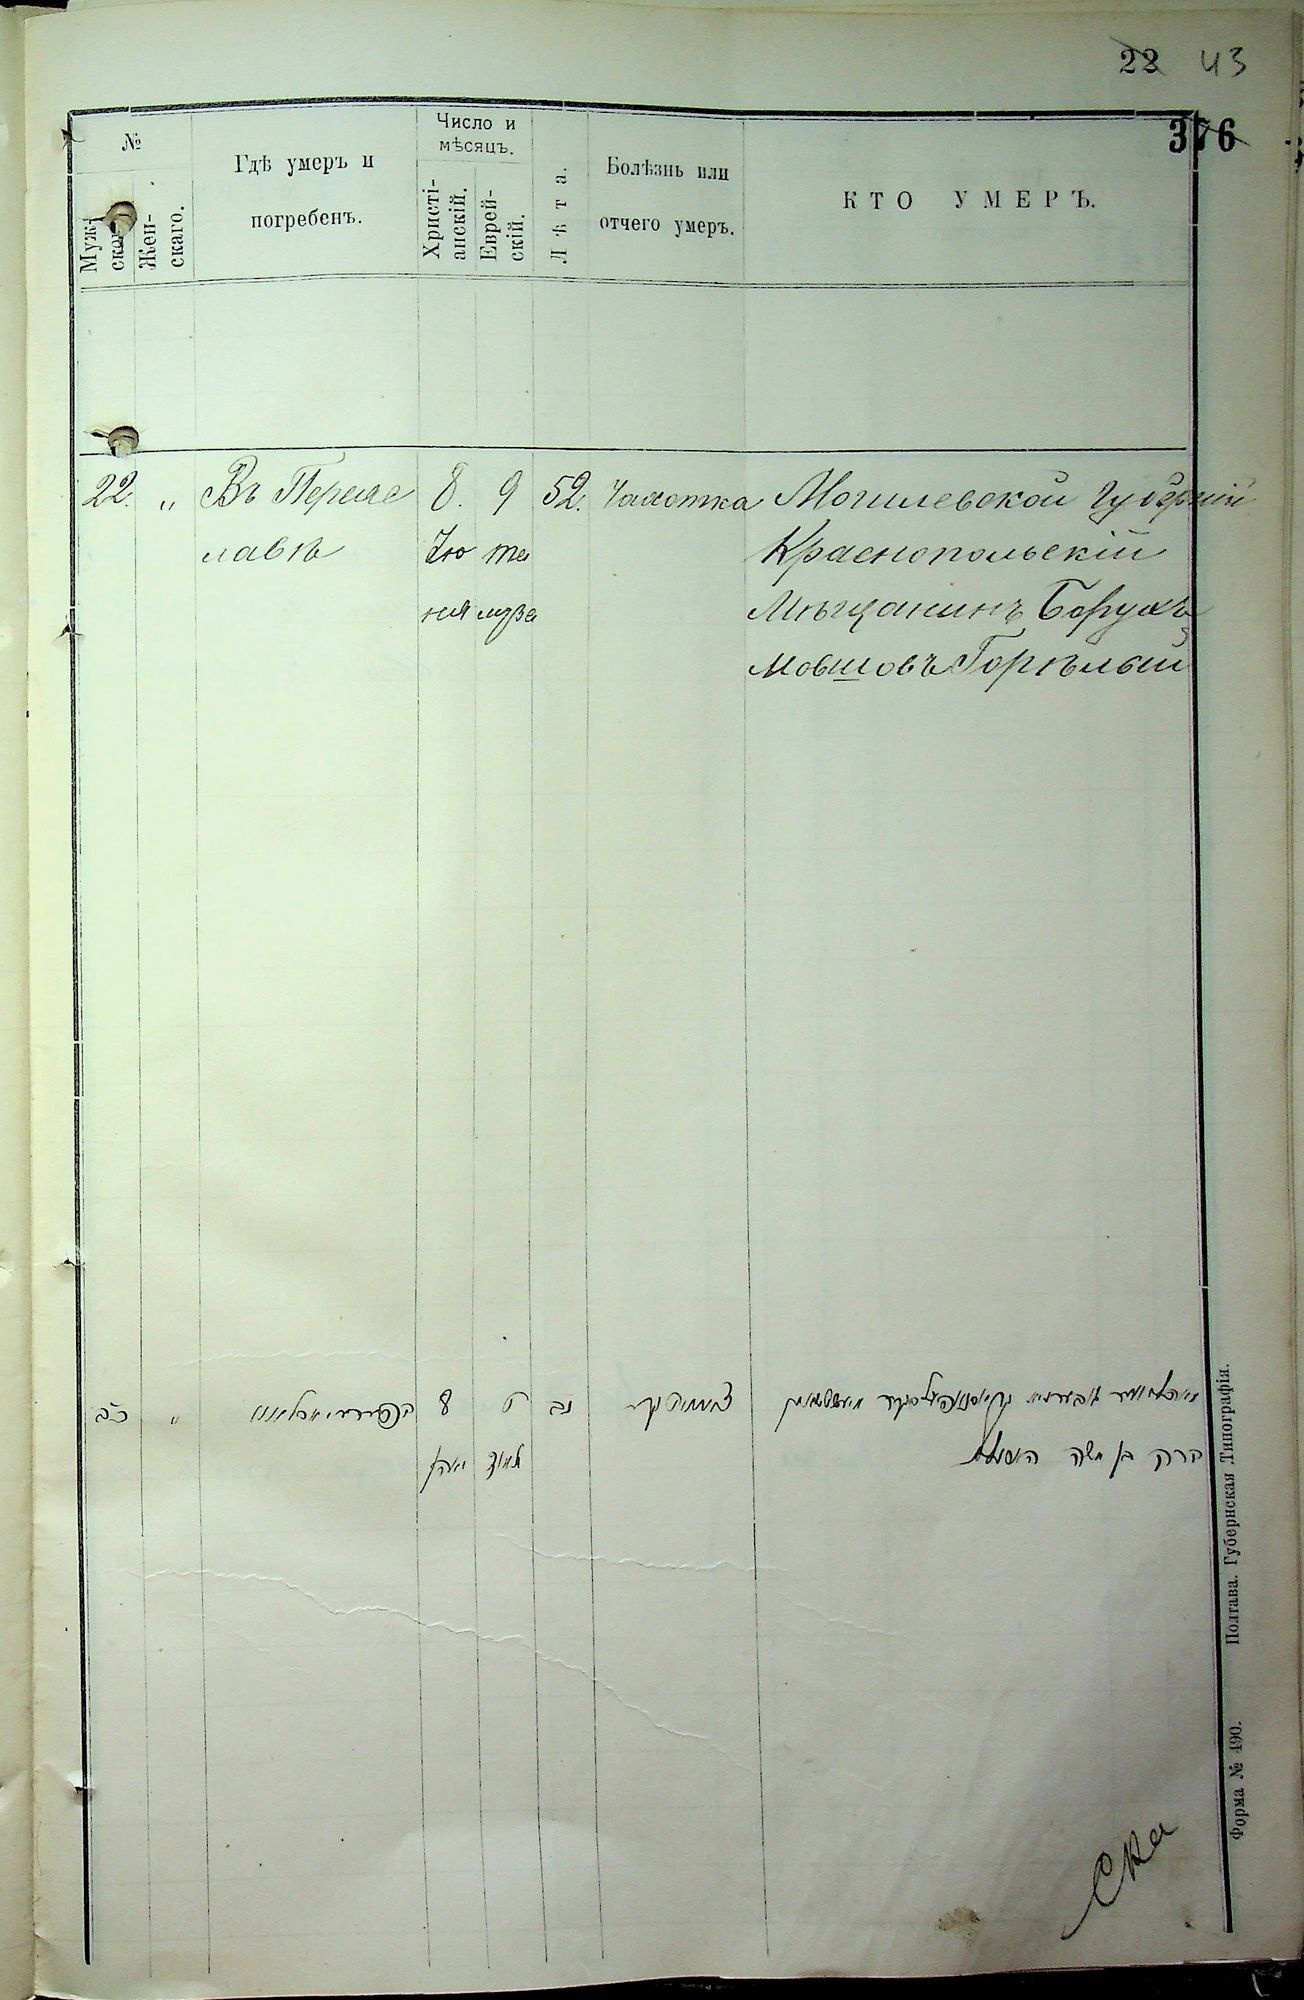 22 43
376
№
Муж-
скаго.
Жен-
скаго.
Гдѣ умеръ и
погребенъ.
Число и
мѣсяцъ.
Христі-
анскій.
Еврей-
скій.
Лѣта.
Болѣзнь или
отчего умеръ.
КТО УМЕРЪ.
22. „ Въ Переяс 8. 9 52. Чахотка Могилевской губерніи
лавѣ Ію та Краснопольскій
ня муза Мѣщанинъ Борухъ
Мовшовъ Горѣлый
כב „ 8 ט נב
תמוז יוני
ברוך בן משה
Ска
Форма № 490. Полтава. Губернская Типографія.